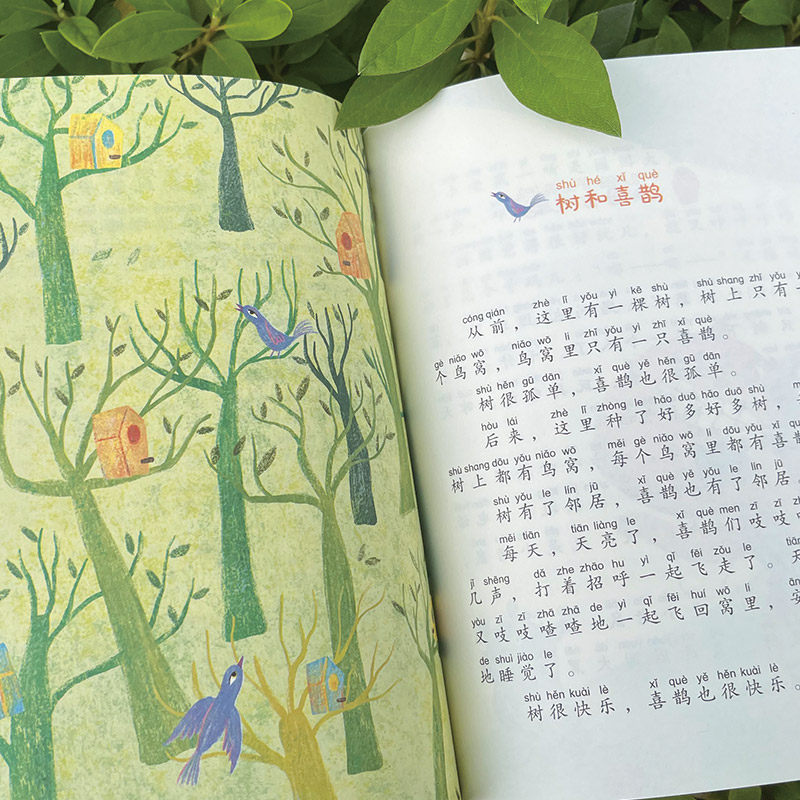 shù hé xǐ què
树和喜鹊
cóng qián zhè lǐ yǒu yì kē shù shù shang zhǐ yǒu
从前，这里有一棵树，树上只有一
gè niǎo wō niǎo wō lǐ zhǐ yǒu yì zhī xǐ què
个鸟窝，鸟窝里只有一只喜鹊。
shù hěn gū dān xǐ què yě hěn gū dān
树很孤单，喜鹊也很孤单。
hòu lái zhè lǐ zhòng le hǎo duō hǎo duō shù
后来，这里种了好多好多树，
shù shang dōu yǒu niǎo wō měi gè niǎo wō li dōu yǒu xǐ
树上都有鸟窝，每个鸟窝里都有喜
shù yǒu le lín jū xǐ què yě yǒu le lín jū
树有了邻居，喜鹊也有了邻居。
měi tiān tiān liàng le xǐ què men zī zī
每天，天亮了，喜鹊们吱吱
jǐ shēng dǎ zhe zhāo hu yì qǐ fēi zǒu le
几声，打着招呼一起飞走了。天
yòu zī zī zhā zhā de yì qǐ fēi huí wō li
又吱吱喳喳地一起飞回窝里，安
de shuì jiào le
地睡觉了。
shù hěn kuài lè xǐ què yě hěn kuài lè
树很快乐，喜鹊也很快乐。